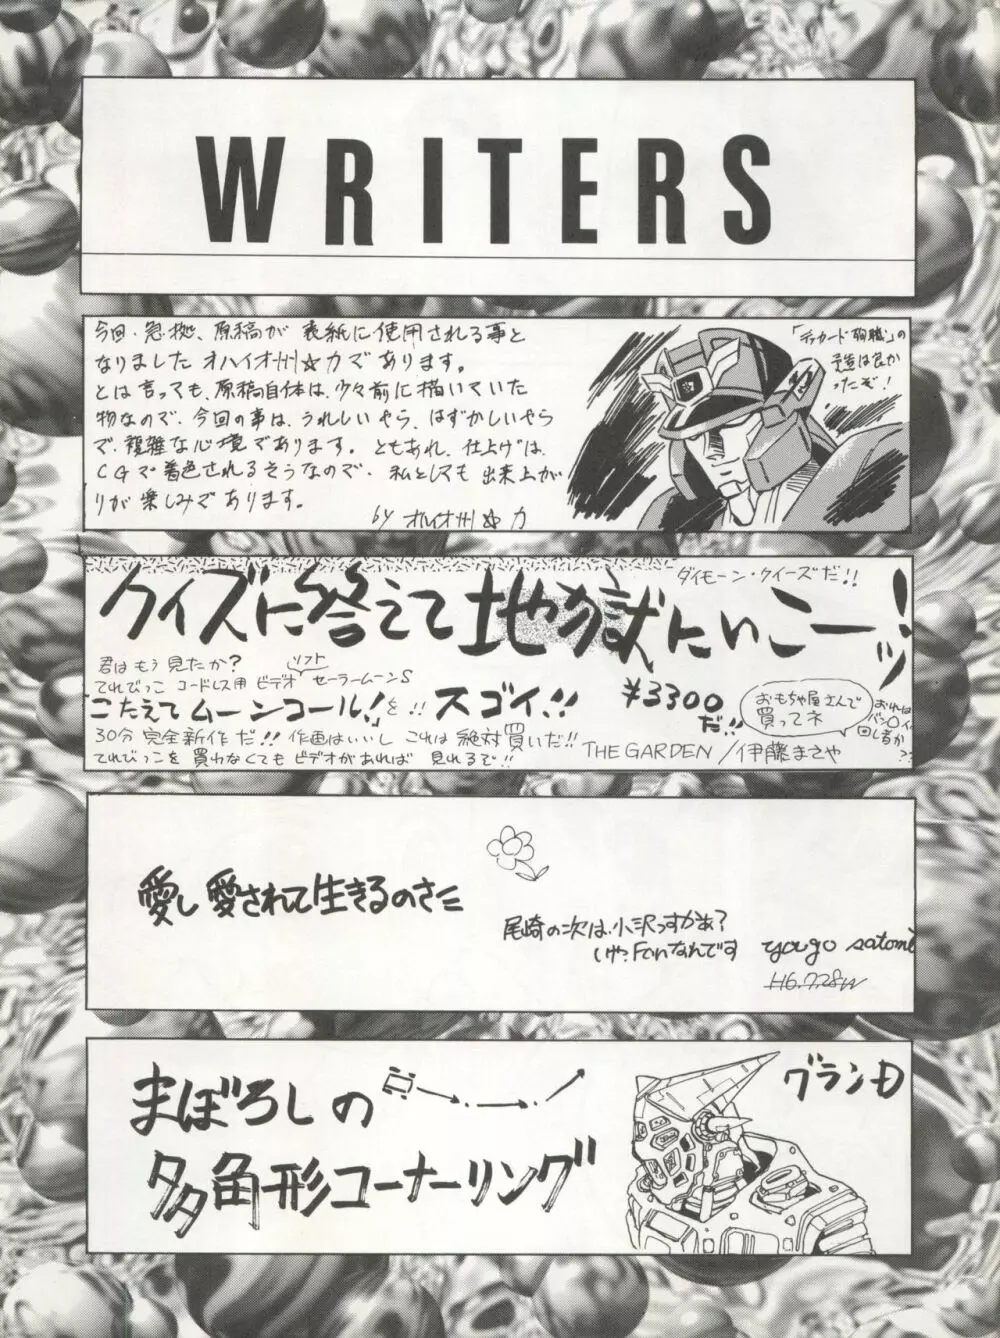 WRITERS
今回、急拠、原稿が表紙に使用される事と
なりましたオハイオ州☆力であります。
とは言っても、原稿自体は、少々前に描いていた
物なので、今回の事は、うれしいやら、はずかしいやら
で、複雑な心境であります。ともあれ、仕上げは、
CGで着色されるそうなので、私としても出来上が
りが楽しみであります。
by オハイオ州☆力
「デッカード殉職」の
は良か
ったぞ!
ダイモーン・クイーズだ!!
クイズに答えて地獄にいこーッ!
君はもう見たか?
てれびっこ コードレス用 ビデオソフト セーラームーンS
こたえてムーンコール!を!! スゴイ!!
¥3300
だ!!
おもちゃ屋さんで
買ってネ
おれは
バン〇イ
回し者か?
30分 完全新作だ!! 作画はいいし これは 絶対買いだ!!
てれびっこを買わなくてもビデオがあれば 見れるで!!
THE GARDEN/伊藤まさや
愛し愛されて生きるのさ
尾崎の次は、小沢っすかぁ?
yougo satomi
H6.7.28
まぼろしの
多角形コーナーリング
グランD